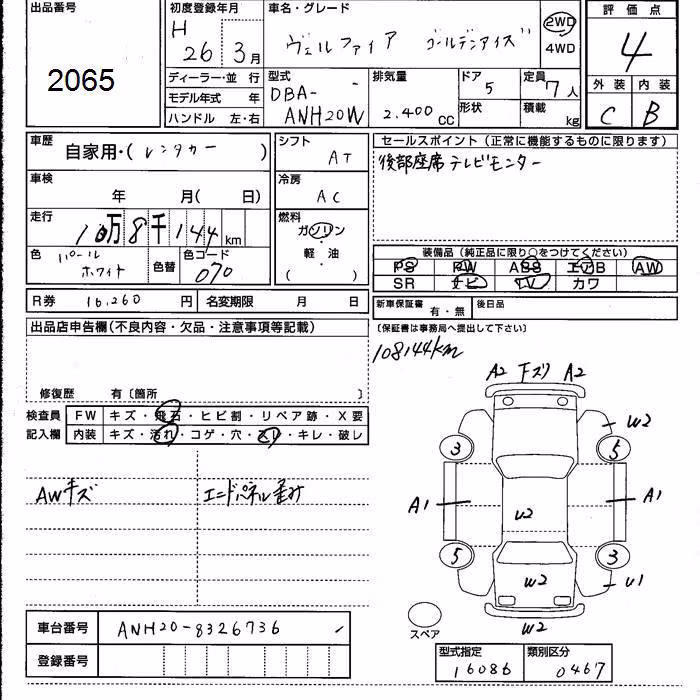 出品番号
2065
初度登録年月
H 26年 3月
車名・グレード
ヴェルファイア ゴールデンアイズ
2WD
4WD
評価点
4
外装 内装
C B
ディーラー・並 行
モデル年式 年
ハンドル 左・右
型式
DBA-
ANH20W
排気量
2.400cc
ドア
5
形状
定員
7人
積載
kg
車歴
自家用・(レンタカー )
車検
年 月( 日)
走行
10万8千144km
色
パール
ホワイト
色替
色コード
070
シフト
AT
冷房
AC
燃料
ガソリン
・
軽・油
( )
セールスポイント(正常に機能するものに限ります)
後部座席テレビモニター
装備品(純正品に限り○をつけてください)
PS PW ABS エアB AW
SR ナビ TV カワ
R券 16,260円 名変期限 月 日
新車保証書 有・無 後日品
(保証書は事務局へ提出して下さい)
出品店申告欄(不良内容・欠品・注意事項等記載)
修復歴 有〔箇所 〕
108144km
検査員
記入欄
FW キズ・飛石・ヒビ割・リペア跡・X要
内装 キズ・汚れ・コゲ・穴・スレ・キレ・破レ
AWキズ
エンドパネル歪み
A2 下ズリ A2
W2
3 5
A1 A1
U2
5 3
W2 U1
W2
スペア
車台番号 ANH20-8326736
登録番号
型式指定
16086
類別区分
0467